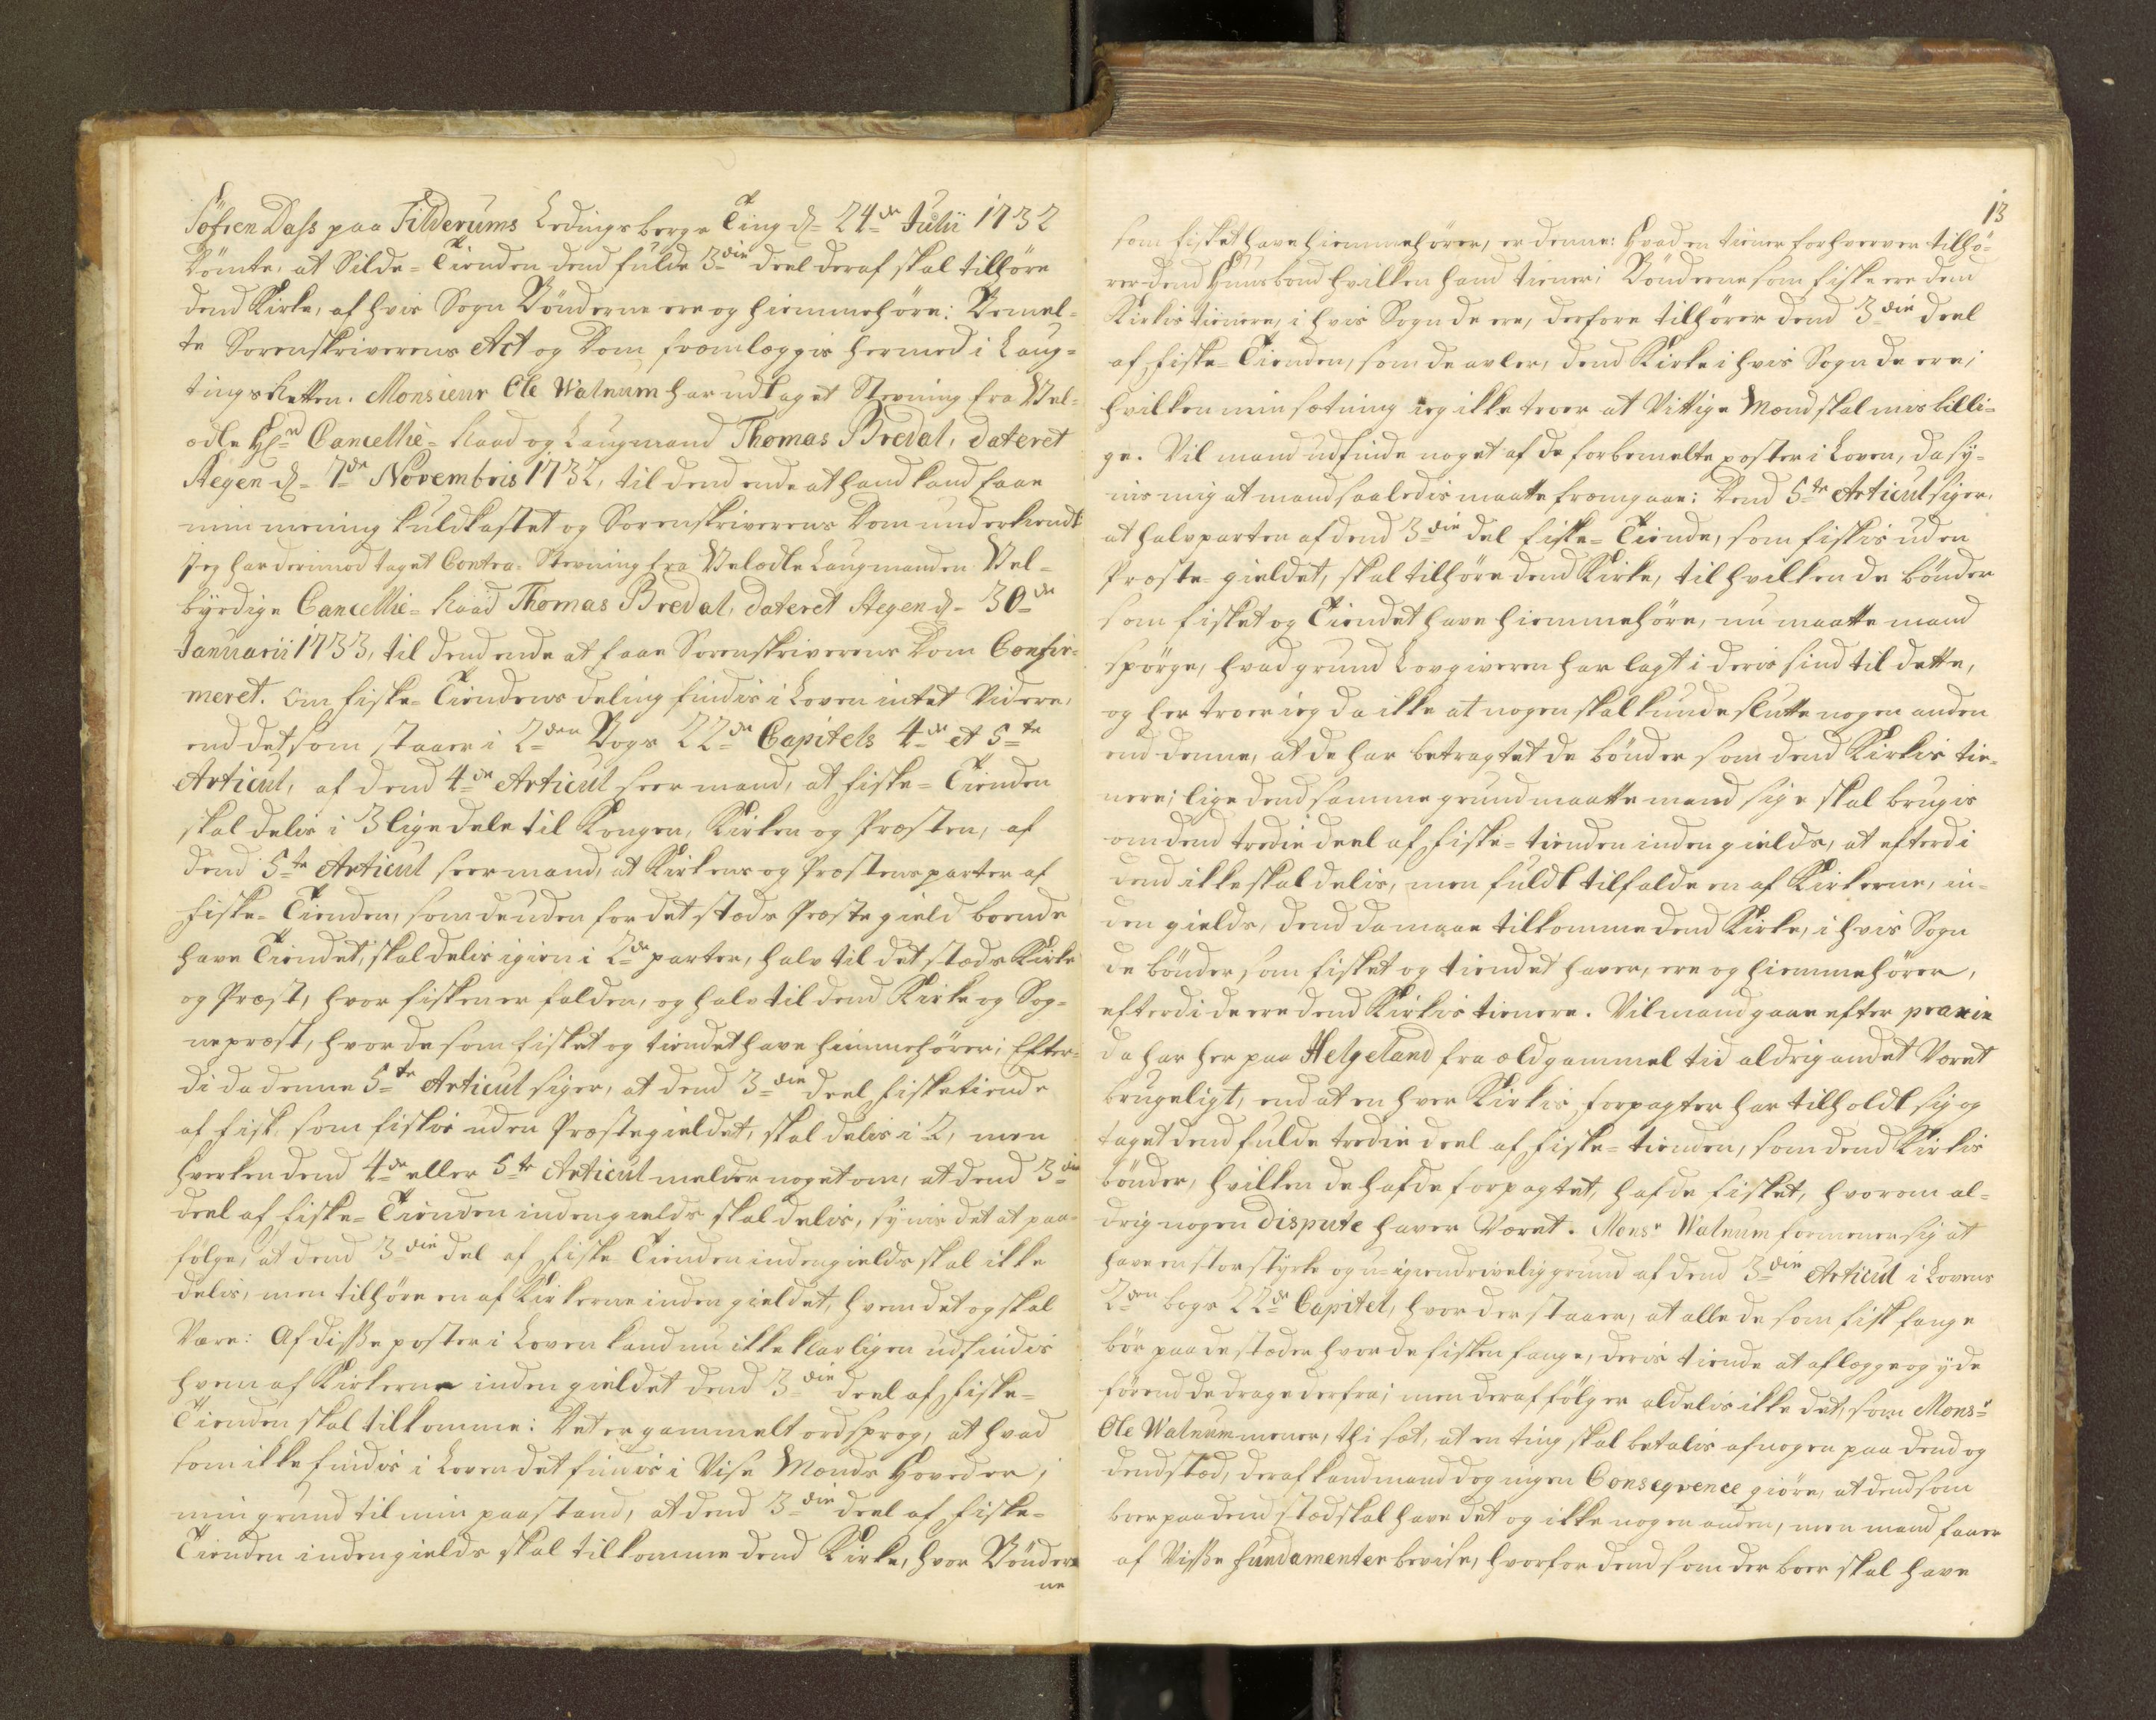 Søfren Dass paa Tilderums Ledingsberge Ting d= 24de Julii 1732
Dømte, at Silde=Tienden dend fulde 3die deel deraf skal tilhøre
dend Kirke, af hvis Sogn Bønderne ere og hiemmehøre: Bemel=
te Sorenskriverens Act og Dom fremlæggis hermed i Laug=
tingsRetten. Monsieur Ole Walnum har udtaget Stevning fra Vel=
ædle Hr Cancellie=Raad og Laugmand Thomas Bredal, dateret
Stegen d= 7de Novembris 1732, til dend ende at hand kand faae
min mening kuldkastet og Sorenskriverens Dom underkiendt
Jeg har derimod taget Contra=Stevning fra Velædle Laugmanden Vel=
byrdige Cancellie=Raad Thomas Bredal, dateret Stegen d= 30de
Januarii 1733, til dend ende at faae Sorenskriverens Dom Confir=
meret. Om fiske=Tiendens deling findis i Loven intet Videre,
end det som staaer i 2den Bogs 22de Capitels 4de et 5te
Articul, af dend 4de Articul seer mand, at fiske=Tienden
skal delis i 3 lige dele til Kongen, Kirken og Præsten, af
dend 5te Articul seer mand, at Kirkens og Præstens parter af
fiske=Tienden, som de uden for det stæds Præstegield boende
have Tiendet, skal delis igien i 2de parter, halv til det stæds Kirke
og Præst, hvor fisken er falden, og halv til dend Kirke og Sog=
nepræst, hvor de som fisket og tiendet have hiemmehører; Efter=
di da denne 5te Articul siger, at dend 3die deel fisketiende
af fisk, som fiskis uden Præstegieldet, skal delis i 2, men
hverken dend 4de eller 5te Articul melder noget om, at dend 3die
deel af fiske=Tienden indengields skal delis, synis det at paa=
følge, at dend 3die del af fiske Tienden indengields skal ikke
delis, men tilhøre en af Kirkerne inden gieldet, hvem det og skal
Være: Af disse poster i Loven kand nu ikke klarligen udfindis
hvem af Kirkerne inden gieldet dend 3die deel af fiske=
Tienden skal tilkomme: Det er gammelt ordsprog, at hvad
som ikke findis i Loven det findis i Vise Mænds Hoveder;
min grund til min paastand, at dend 3die deel af fiske=
Tienden indengields skal tilkomme dend Kirke, hvor Bønder=
ne
13
som fisket have hiemmehører, er denne: Hvad en tiener forhverver tilhø=
rer dend Huusbond hvilken hand tiener; Bønderne som fiske ere dend
Kirkis tienere, i hvis Sogn de ere, derfore tilhører dend 3die deel
af fiske=Tienden, som de avler, dend Kirke i hvis Sogn de ere;
hvilken min sætning ieg ikke troer at Vittige Mænd skal misbilli=
ge. Vil mand udfinde noget af de forbemelte poster i Loven, da sy=
nis mig at mand saaledis maatte fremgaae: Dend 5te Articul siger,
at halvparten af dend 3die del fiske=Tiende, som fiskis uden
Præste=gieldet, skal tilhøre dend Kirke, til hvilken de bønder
som fisket og Tiendet have hiemmehøre, nu maatte mand
spørge, hvad grund Lovgiveren har lagt i deris sind til dette,
og her troer ieg da ikke at nogen skal kunde slutte nogen anden
end denne, at de har betragtet de bønder som dend Kirkis tie=
nere; lige dend samme grund maatte mand sige skal brugis
om dend tredie deel af fiske=tienden inden gields, at efterdi
dend ikke skal delis, men fuldt tilfalde en af Kirkerne, in=
den gields, dend da maae tilkomme dend Kirke, i hvis Sogn
de bønder som fisket og tiendet haver, ere og hiemmehører,
efterdi de ere dend Kirkis tienere. Vil mand gaae efter praxin
da har her paa Helgeland fra ældgammel tid aldrig andet Været
brugeligt, end at en hver Kirkis forpagter har tilholdt sig og
taget dend fulde tredie deel af fiske=tienden, som dend Kirkis
bønder, hvilken de hafde forpagtet, hafde fisket, hvorom al=
drig nogen dispute haver Været. Monsr Walnum formener sig at
have en stor styrke og u=igiendrivelig grund af dend 3die Articul i Lovens
2den bogs 22de Capitel, hvor der staaer, at alle de som fisk fange
bør paa de stæder hvor de fisken fange, deris tiende at aflægge og yde
førend de drage derfra; men deraf følger aldelis ikke det, som Monsr
Ole Walnum mener, thi sæt, at en ting skal betalis af nogen paa dend og
dend stæd, deraf kand mand dog ingen Conseqvence giøre, at dend som
boer paa dend stæd skal have det og ikke nogen anden, men mand faaer
af Visse fundamenter bevise, hvorfor dend som der boer skal have